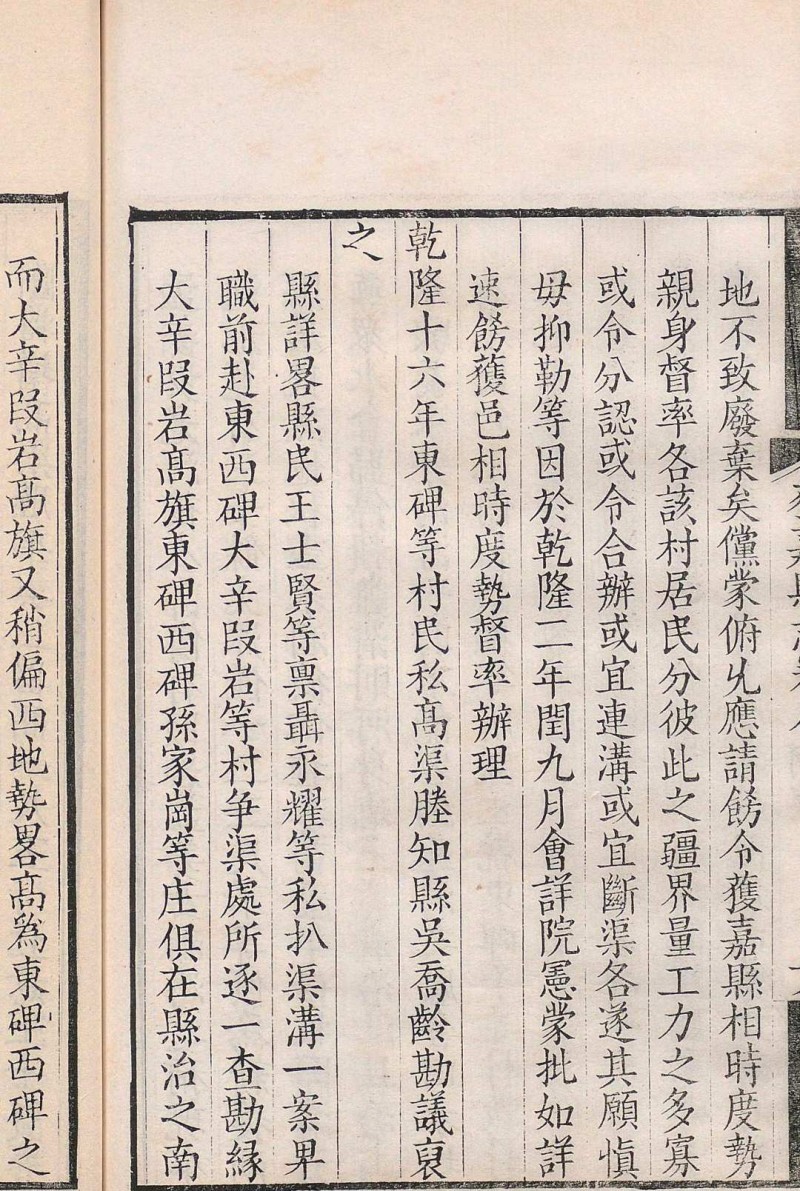 地不致廢棄矣儻蒙俯允應請餝令獲嘉縣相時度勢
親身督率各該村居民分彼此之疆界量工力之多寡
或令分認或令合辦或宜連溝或宜斷渠各遂其願慎
毋抑勒等因於乾隆二年閏九月會詳院憲蒙批如詳
速餝獲邑相時度勢督率辦理
乾隆十六年東碑等村民私高渠塍知縣吳喬齡勘議裒
之
縣詳畧縣民王士賢等禀聶永耀等私扒渠溝一案畢
職前赴東西碑大辛叚岩等村争渠處所逐一查勘緣
大辛叚岩高旗東碑西碑孫家崗等庄俱在縣治之南
而大辛叚岩高旗又稍偏西地勢畧高為東碑西碑之